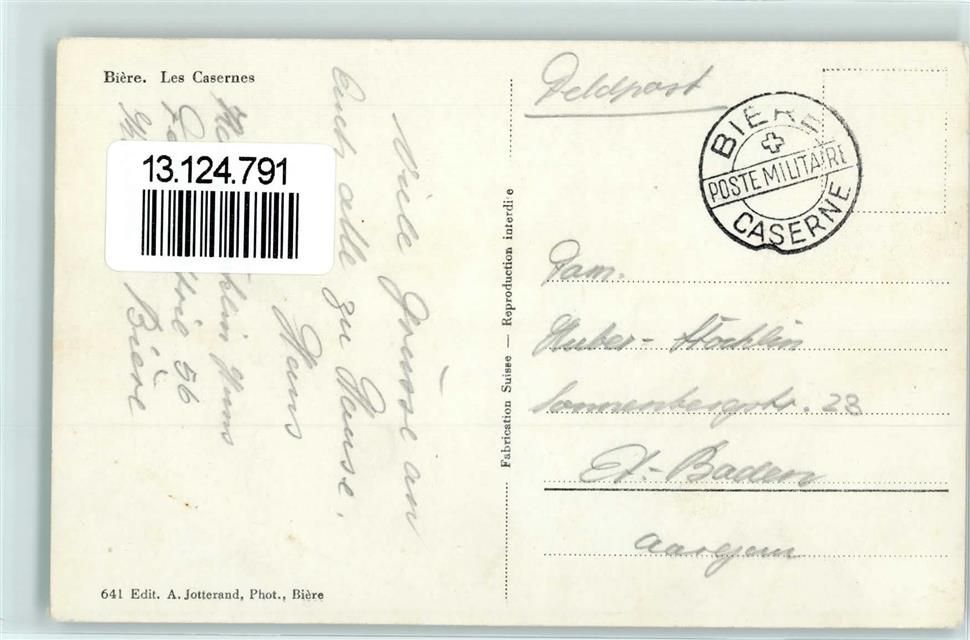 Bière. Les Casernes
13.124.791
Viele Grüsse an
Euch alle zu Hause.
Hans
Hans
56
Bière
641 Edit. A. Jotterand, Phot., Bière
Fabrication Suisse — Reproduction interdite
Feldpost
BIÈRE
POSTE MILITAIRE
CASERNE
Fam.
Huber - Stöcklin
Sonnenbergstr. 23
Et. - Baden
Aargau